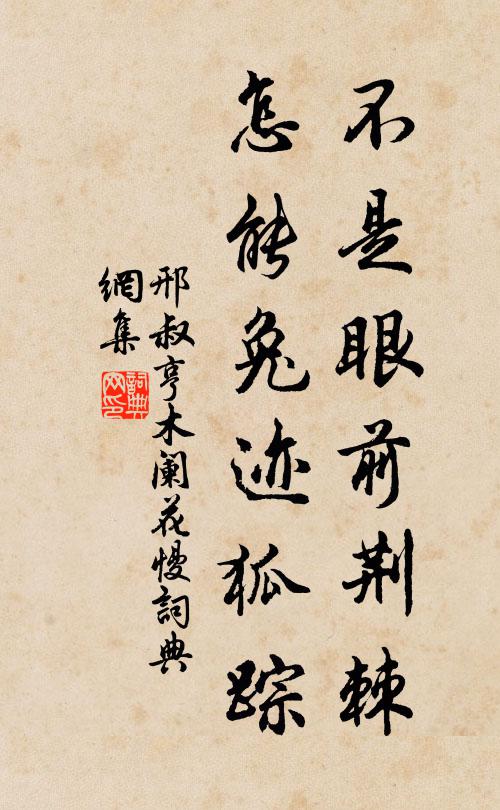 不是眼前荆棘
怎能兔迹狐踪
邢叔亨木阑花慢詞典
網集
詞典
网印